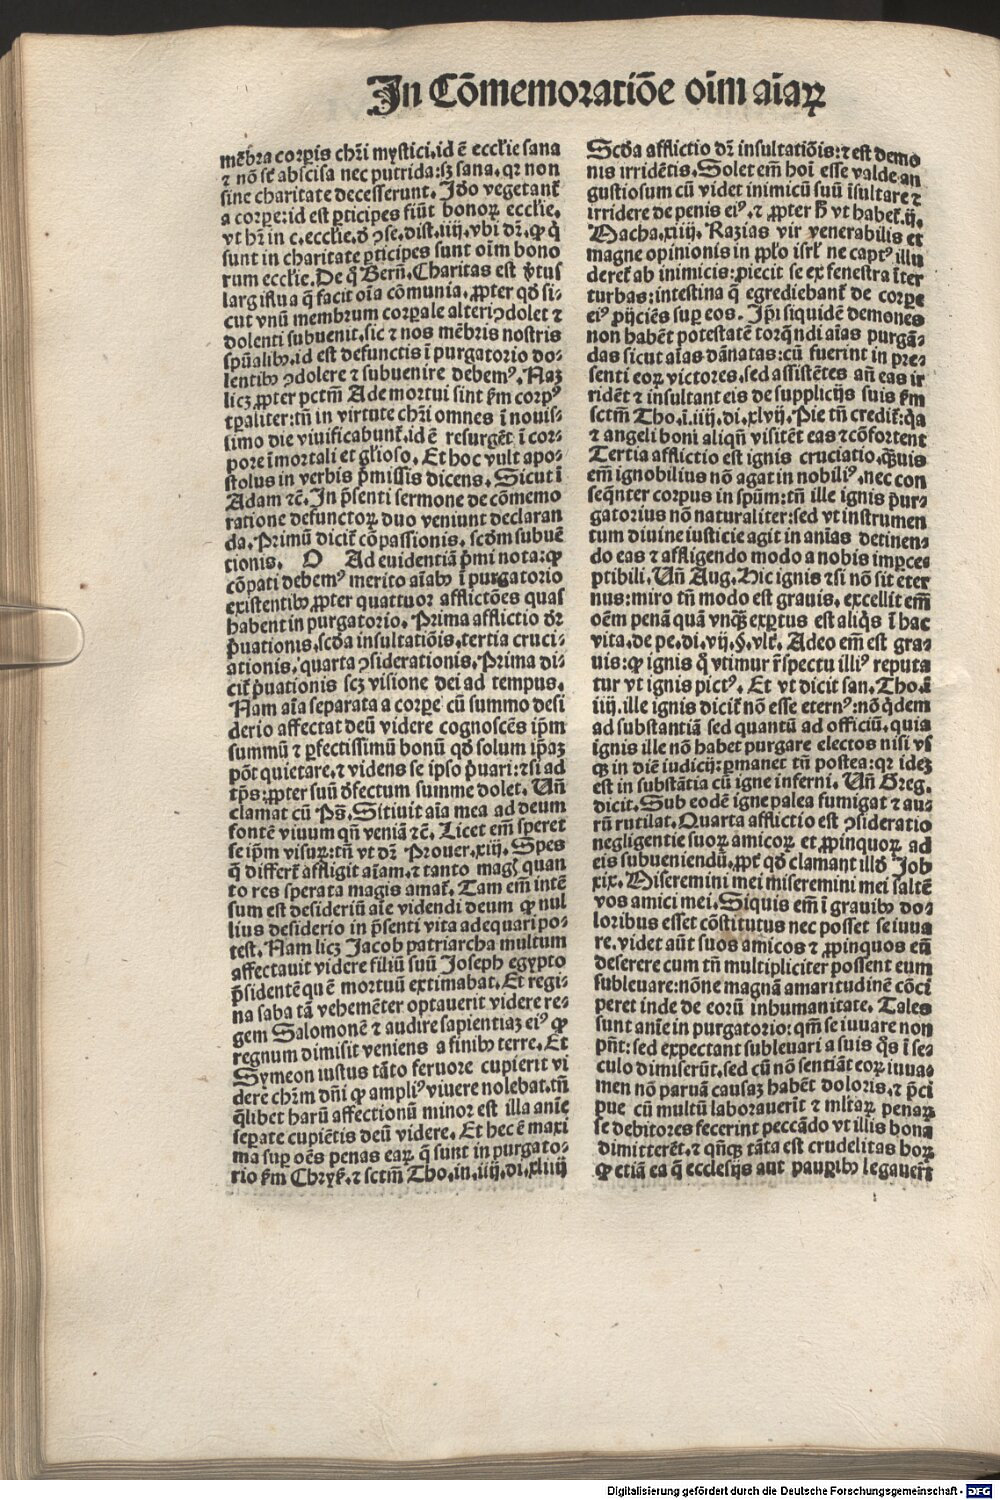 In Cōmemoratiōe oīm aīaꝝ
mēbra corꝑis chr̄i mystici.id ē eccl̄ie sana
⁊ nō sūt abscisa nec putrida:sꝫ sana.qꝛ non
sine charitate decesserunt. Iō vegetant̄
a corꝑe:id est ꝑticipes fiūt bonoꝝ eccl̄ie.
vt hr̄ in c.eccl̄ie.d̄ ꝯse.dist.iiij.vbi dr̄.ꝙ q̇
sunt in charitate ꝑticipes sunt oīm bono
rum eccl̄ie. De q̇ Bern̄. Charitas est v̓tus
largiflua q̄ facit oīa cōmunia.ꝓpter qd̓ si-
cut vnū membrum corꝑale alteri ꝯdolet ⁊
dolenti subuenit.sic ⁊ nos mēbris nostris
spūalibꝰ.id est defunctis ī purgatorio do-
lentibꝰ ꝯdolere ⁊ subuenire debemꝰ. Naꝫ
licꝫ ꝓpter pctm̄ Ade mortui sint km̄ corpꝰ
tꝑaliter:tn̄ in virtute chr̄i omnes ī nouis-
simo die viuificabunt̄.id ē resurgēt ī cor-
pore īmortali et gl̄ioso. Et hoc vult apo-
stolus in verbis p̄missis dicens. Sicut ī
Adam ⁊c̄. In p̄senti sermone de cōmemo
ratione defunctoꝝ duo veniunt declaran
da. Primū dicit̄ cōpassionis. scd̓m subuē
tionis. O Ad euidentiā p̄mi nota:ꝙ
cōpati debemꝰ merito aīabꝰ ī purgatorio
existentibꝰ ꝓpter quattuor afflictōes quas
habent in purgatorio. Prima afflictio dr̄
p̓uationis.scd̓a insultatiōis.tertia cruci-
ationis. quarta ꝯsiderationis. Prima di-
cit̄ p̓uationis scꝫ visione dei ad tempus.
Nam aīa separata a corꝑe cū summo desi
derio affectat deū videre cognoscēs ip̄m
summū ⁊ ꝑfectissimū bonū qd̓ solum ip̄aꝫ
pōt quietare.⁊ videns se ipso p̓uari:⁊ si ad
tp̄s:ꝓpter suū d̓fectum summe dolet. Un̄
clamat cū Ps̄. Sitiuit aīa mea ad deum
fontē viuum qn̄ veniā ⁊c̄. Licet em̄ speret
se ip̄m visuꝝ:tn̄ vt dr̄ Prouer.xiij. Spes
q̄ differt̄ affligit aīam.⁊ tanto magꝭ quan
to res sperata magis amat̄. Tam em̄ intē
sum est desideriū aīe videndi deum ꝙ nul
lius desiderio in p̄senti vita adequari po-
test. Nam licꝫ Jacob patriarcha multum
affectauit videre filiū suū Joseph egypto
p̄sidentē quē mortuū extimabat. Et regi-
na saba tā vehemēter optauerit videre re-
gem Salomonē ⁊ audire sapientiaꝫ eiꝰ ꝙ
regnum dimisit veniens a finibꝰ terre. Et
Symeon iustus tāto feruore cupierit vi
dere chr̄m dn̄i ꝙ ampliꝰ viuere nolebat.tn̄
q̄libet harū affectionū minor est illa anīe
seꝑate cupiētis deū videre. Et hec ē maxi
ma suꝑ oēs penas eaꝝ q̄ sunt in purgato-
rio km̄ Chryẜ.⁊ sctm̄ Tho.in.iiij.di.xliiij
Scd̓a afflictio dr̄ insultatiōis:⁊ est demo
nis irridētis. Solet em̄ hoī esse valde an
gustiosum cū videt inimicū suū īsultare ⁊
irridere de penis eiꝰ.⁊ ꝓpter h̄ vt habet̄.ij.
Macha.xiiij. Razias vir venerabilis et
magne opinionis in pp̄lo isrl̄ ne captꝰ illu
deret̄ ab inimicis:ꝓiecit se ex fenestra īter
turbas:intestina q̄ egrediebant̄ de corꝑe
eiꝰ ꝓijciēs suꝑ eos. Ip̄i siquidē demones
non habēt potestatē torq̄ndi aīas purgā-
das sicut aīas dānatas:cū fuerint in pre-
senti eoꝝ victores.sed assistētes an̄ eas ir
ridēt ⁊ insultant eis de supplicijs suis km̄
sctm̄ Tho.ī.iiij.di.xlvij. Pie tn̄ credit̄:q̓a
⁊ angeli boni aliqn̄ visitēt eas ⁊ cōfortent
Tertia afflictio est ignis cruciatio.q̄uis
em̄ ignobilius nō agat in nobiliꝰ.nec con
seq̄nter corpus in spūm:tn̄ ille ignis p̄ur-
gatorius nō naturaliter:sed vt instrumen
tum diuine iusticie agit in anīas detinen-
do eas ⁊ affligendo modo a nobis imꝑce-
ptibili. Un̄ Aug. Hic ignis ⁊si nō sit eter
nus:miro tn̄ modo est grauis. excellit em̄
oēm penā quā vnq̄ꝫ exꝑtus est aliq̇s ī hac
vita.de pe.di.vij.§.vlt̄. Adeo em̄ est gra-
uis:ꝙ ignis q̇ vtimur r̄spectu illiꝰ reputa
tur vt ignis pictꝰ. Et vt dicit san. Tho.ī
iiij.ille ignis dicit̄ nō esse eternꝰ:nō q̇dem
ad substantiā sed quantū ad officiū.quia
ignis ille nō habet purgare electos nisi vs
qꝫ in diē iudicij:ꝑmanet tn̄ postea:qꝛ ideꝫ
est in substātia cū igne inferni. Un̄ Greg.
dicit. Sub eodē igne palea fumigat ⁊ au-
rū rutilat. Quarta afflictio est ꝯsideratio
negligentie suoꝝ amicoꝝ et ꝓpinquoꝝ ad
eis subueniendū.ꝓut qd̓ clamant illd̓ Job
xix. Miseremini mei miseremini mei saltē
vos amici mei. Siquis em̄ ī grauibꝰ do-
loribus esset cōstitutus nec posset se iuua
re.videt aūt suos amicos ⁊ ꝓpinquos eū
deserere cum tn̄ multipliciter possent eum
subleuare:nōne magnā amaritudinē cōci
peret inde de eorū inhumanitate. Tales
sunt anīe in purgatorio:qm̄ se iuuare non
pn̄t:sed expectant subleuari a suis q̇s ī se-
culo dimiserūt.sed cū nō sentiāt eoꝝ iuua-
men nō paruā causaꝫ habēt doloris.⁊ p̄ci
pue cū multū laborauerīt ⁊ ml̄taꝝ penaꝝ
se debitores fecerint peccādo vt illis bona
dimitterēt.⁊ qn̄qꝫ tāta est crudelitas hoꝝ
ꝙ etiā ea q̄ ecclesijs aut pauꝑibꝰ legauerīt
Digitalisierung gefördert durch die Deutsche Forschungsgemeinschaft - DFG